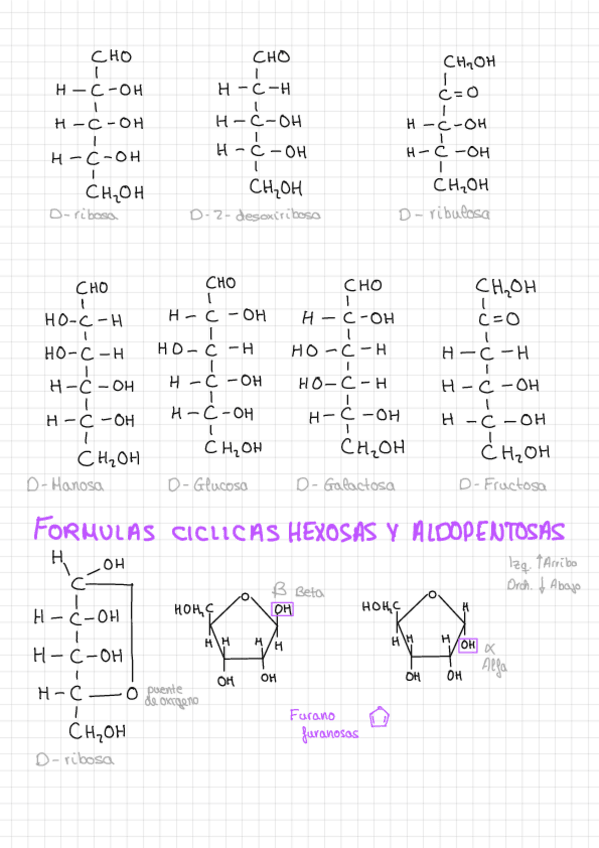 CHO CHO CH₂OH
H - C - OH H - C - H C = O
H - C - OH H - C - OH H - C - OH
H - C - OH H - C - OH H - C - OH
CH₂OH CH₂OH CH₂OH
D-ribosa D-2-desoxiribosa D-ribulosa
CHO CHO CHO CH₂OH
HO - C - H H - C - OH H - C - OH C = O
HO - C - H HO - C - H HO - C - H H - C - H
H - C - OH H - C - OH HO - C - H H - C - OH
H - C - OH H - C - OH H - C - OH H - C - OH
CH₂OH CH₂OH CH₂OH CH₂OH
D-Manosa D-Glucosa D-Galactosa D-Fructosa
FORMULAS CICLICAS HEXOSAS Y ALDOPENTOSAS
H OH
C
H - C - OH
H - C - OH
H - C - O puente de oxigeno
CH₂OH
D-ribosa
β Beta
O
HOH₂C OH
H H H H
OH OH
Izq. ↑ Arriba
Drch. ↓ Abajo
O
HOH₂C H
H H H OH
OH OH
α Alfa
Furano
furanosas